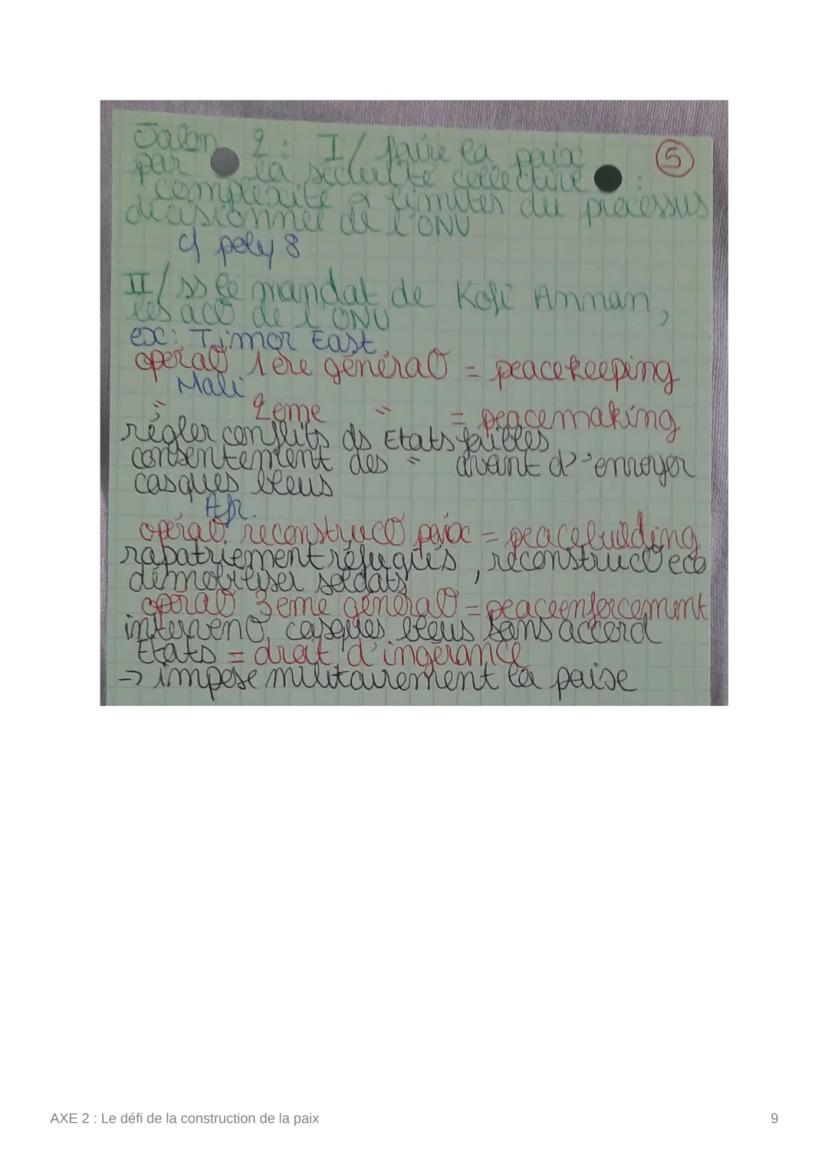 Jalon 2 : I/ faire la paix
5
par la sécurité collective :
complexité & limites du processus
décisionnel de l'ONU
cf poly 8
II/ ss le mandat de Kofi Annman,
les de l'ONU
ex : Timor East
opéra° 1ère généra° = peacekeeping
Mali
" 2eme " = peacemaking
régler conflits ds Etats faibles
consentement des " avant d'envoyer
casques bleus
Afr.
opéra° reconstruc° paix = peacebuilding
rapatriement réfugiés, reconstruc° eco
démobiliser soldats
opéra° 3eme généra° = peaceenforcement
interven° casques bleus sans accord
Etats = droit d'ingérance
→ impose militairement la paise
AXE 2 : Le défi de la construction de la paix
9